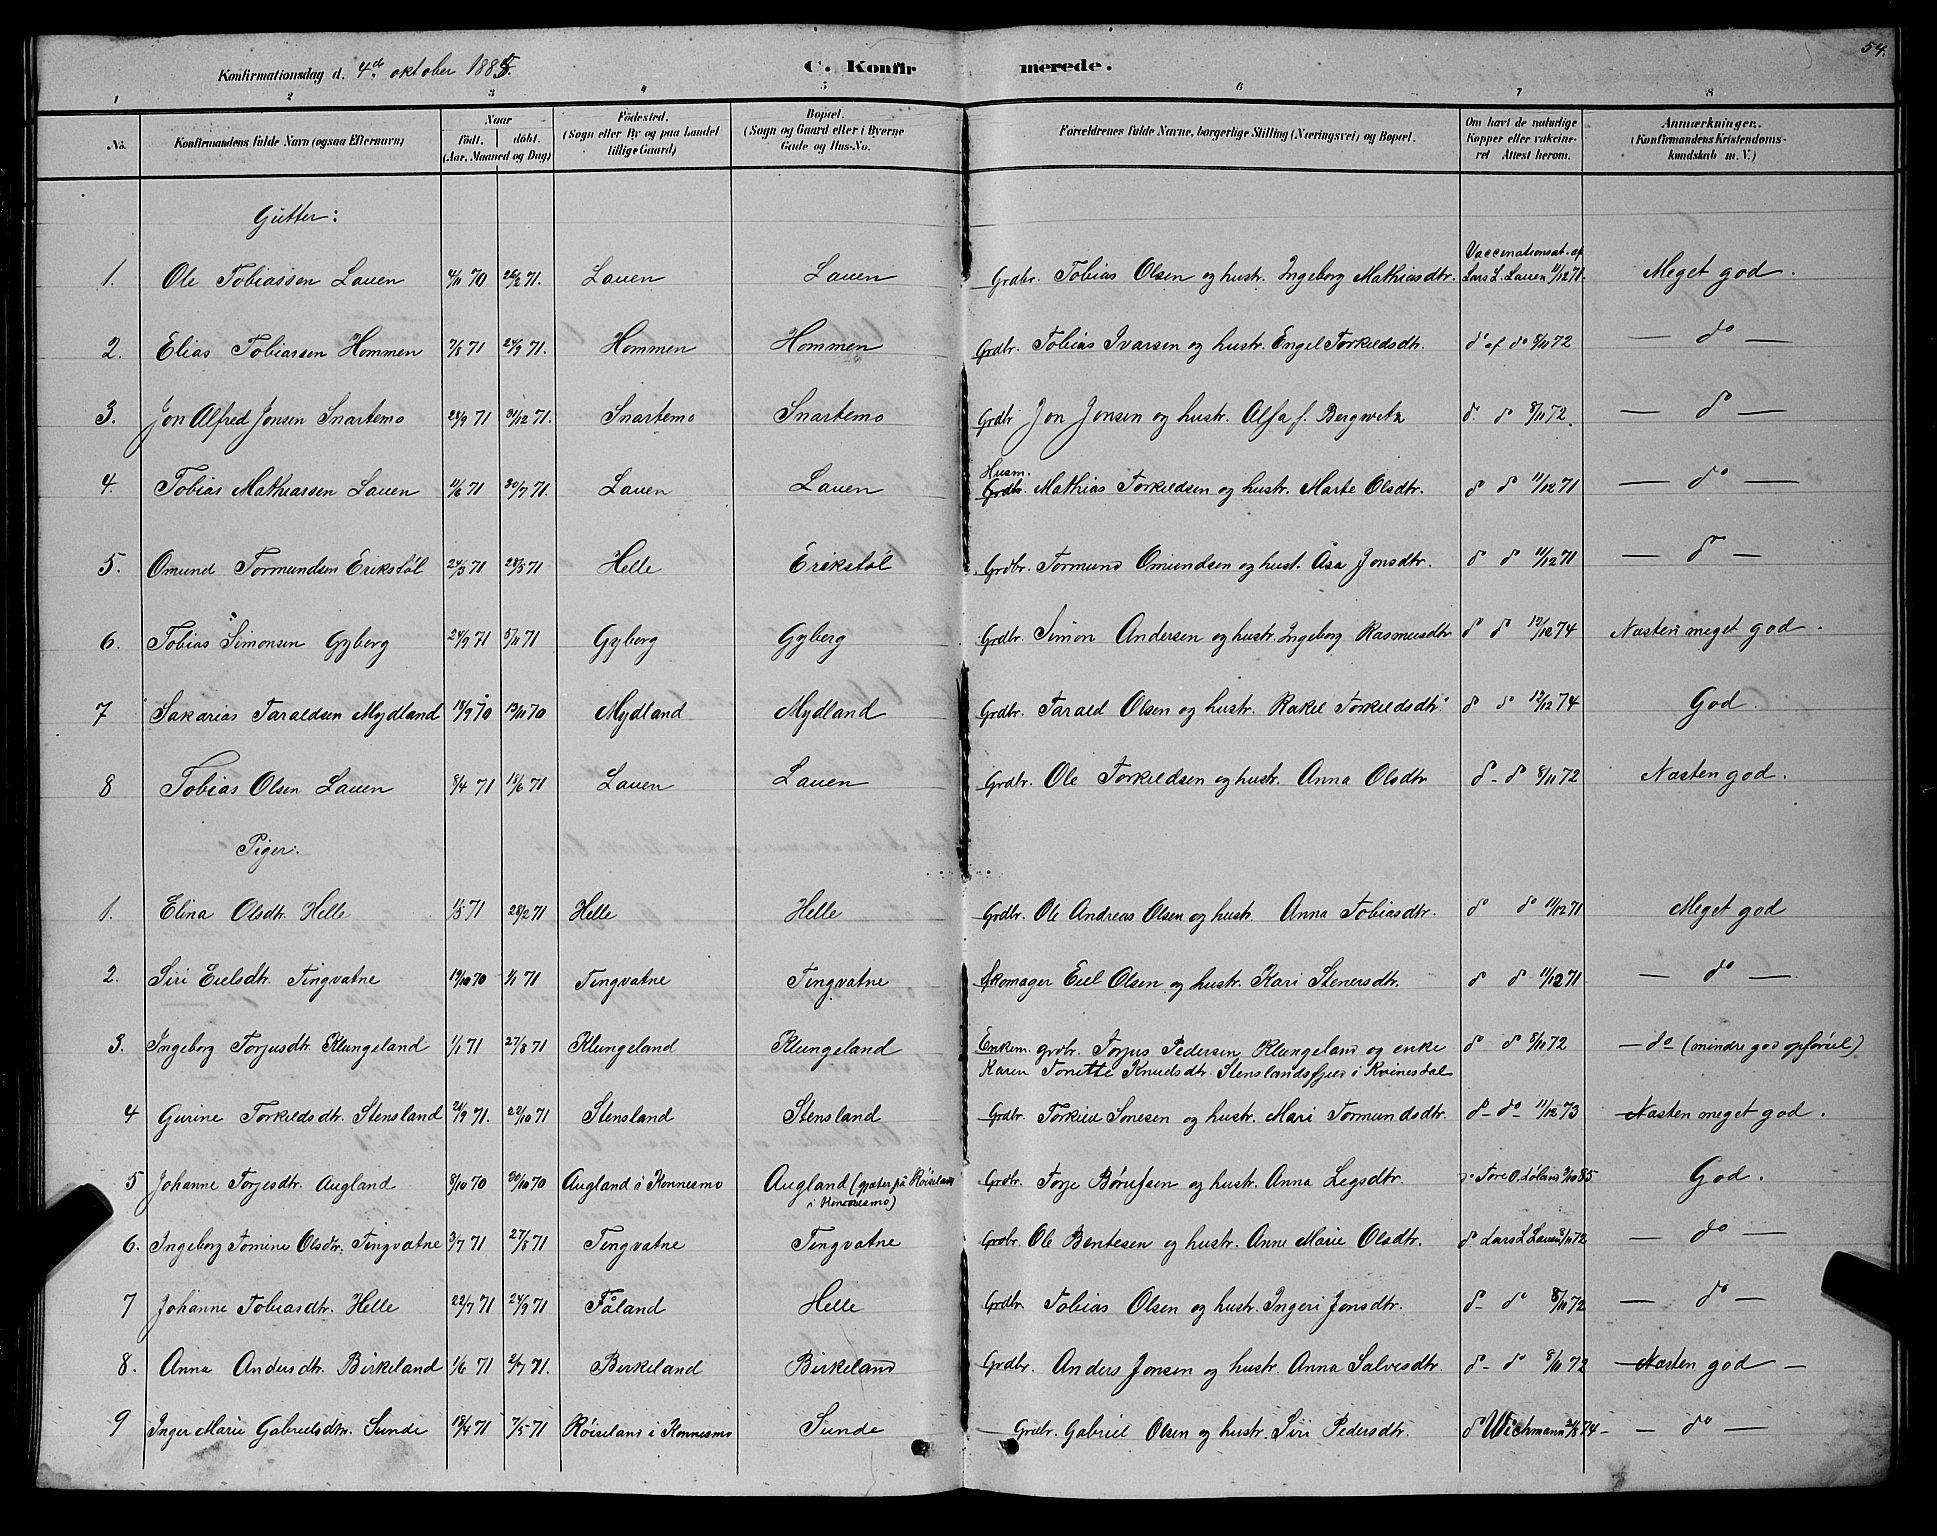 54.
Konfirmationsdag d. 4de oktober 1885. C. Konfirmerede.
1 2 3 4 5 6 7 8
No. Konfirmandens fulde Navn (ogsaa Efternavn) Naar født. døbt. (Aar, Maaned og Dag) Fødested. (Sogn eller By og paa Landet tillige Gaard) Bopæl. (Sogn og Gaard eller i Byerne Gade og Hus-No. Forældrenes fulde Navne, borgerlige Stilling (Næringsvei) og Bopæl. Om havt de naturlige Kopper eller vakcineret Attest herom. Anmærkninger. (Konfirmandens Kristendomskundskab m. V.)
Gutter:
1. Ole Tobiassen Lauen 4/11 70 26/2 71. Lauen Lauen Grdbr. Tobias Olsen og hustr. Ingeborg Mathiasdtr. Vaccenationsat. af Lars L. Lauen 11/12 71. Meget god.
2. Elias Tobiassen Hommen 7/8 71 24/9 71. Hommen Hommen Grdbr. Tobias Ivarsen og hustr. Engel Torkeldsdtr. do af do 8/11 72 — do —
3. Jon Alfred Jonsen Snartemo 28/9 71 31/12 71. Snartemo Snartemo Grdbr Jon Jonsen og hustr. Alfa f. Bergwitz do do 8/11 72. — do —
4. Tobias Mathiassen Lauen 11/6 71 30/7 71. Lauen Lauen Husm. Grdbr. Mathias Torkeldsen og hustr. Marte Olsdtr. do do 11/12 71 — do —
5. Omund Tormundsen Erikstøl 24/3 71 28/3 71 Helle Erikstøl Grdbr. Tormund Omundsen og hust. Åsa Jonsdtr. do do 11/12 71 — do —
6. Tobias Simonsen Gyberg 24/9 71 5/11 71 Gyberg Gyberg Grdbr. Simon Andersen og hustr. Ingeborg Rasmusdtr do do 12/12 74 Næsten meget god.
7 Sakarias Taraldsen Mydland 18/9 70 19/10 70 Mydland Mydland Grdbr. Tarald Olsen og hustr. Rakel Torkeldsdtr. do do 12/12 74 God.
8 Tobias Olsen Lauen 8/4 71 18/6 71 Lauen Lauen Grdbr. Ole Torkeldsen og hustr. Anna Olsdtr do - do 8/11 72 Næsten god.
Piger:
1. Elina Olsdtr. Helle 28/2 71 Helle Helle Grdbr. Ole Andreas Olsen og hustr. Anna Tobiasdtr. do do 11/12 71 Meget god
2. Siri Eielsdtr. Tingvatne 19/10 70 1/1 71 Tingvatne Tingvatne Skomager Eiel Olsen og hustr. Kari Stenersdtr. do do 11/12 71 — do —
3. Ingeborg Torjusdtr. Klungeland 1/1 71 27/8 71 Klungeland Klungeland Enkem. grdbr. Torjus Pedersen Klungeland og enke do do 8/11 72 — do (mindre god opførsel)
Karen Tonette Knudsdtr. Stenslandsfjeld i Kvinesdal
4 Gurine Torkeldsdtr. Stensland 21/9 71. 22/10 71 Stensland Stensland Grdbr. Torkiel Sønesen og hustr. Mari Tormundsdtr. do - do 11/12 73 Næsten meget god.
5 Johanne Torjesdtr. Augland 8/10 70 30/10 70 Augland i Konnesmo Augland (gjæter på Røiseland i Konnesmo) Grdbr. Torje Børufsen og hustr. Anna Legsdtr. do Tore O. Løland 2/10 85 God.
6. Ingeborg Tomine Olsdtr. Tingvatne 3/7 71 27/8 71 Tingvatne Tingvatne Grdbr. Ole Bentesen og hustr. Anne Marie Olsdtr. do Lars L Lauen 8/11 72 — do —
7 Johanne Tobiasdtr. Helle 22/7 71 24/9 71 Fåland Helle Grdbr. Tobias Olsen og hustr. Ingeri Jonsdtr. do - do 8/11 72 — do —
8. Anna Andersdtr. Birkeland 1/6 71 2/7 71. Birkeland Birkeland Grdbr. Anders Jonsen og hustr. Anna Salvesdtr. do - do 8/11 72 Næsten god —
9 Inger Marie Gabrielsdtr. Sunde 18/4 71 7/5 71 Røiseland i Konnesmo Sunde Grdbr. Gabriel Olsen og hustr. Siri Pedersdtr. do Wichmann 74 — do —